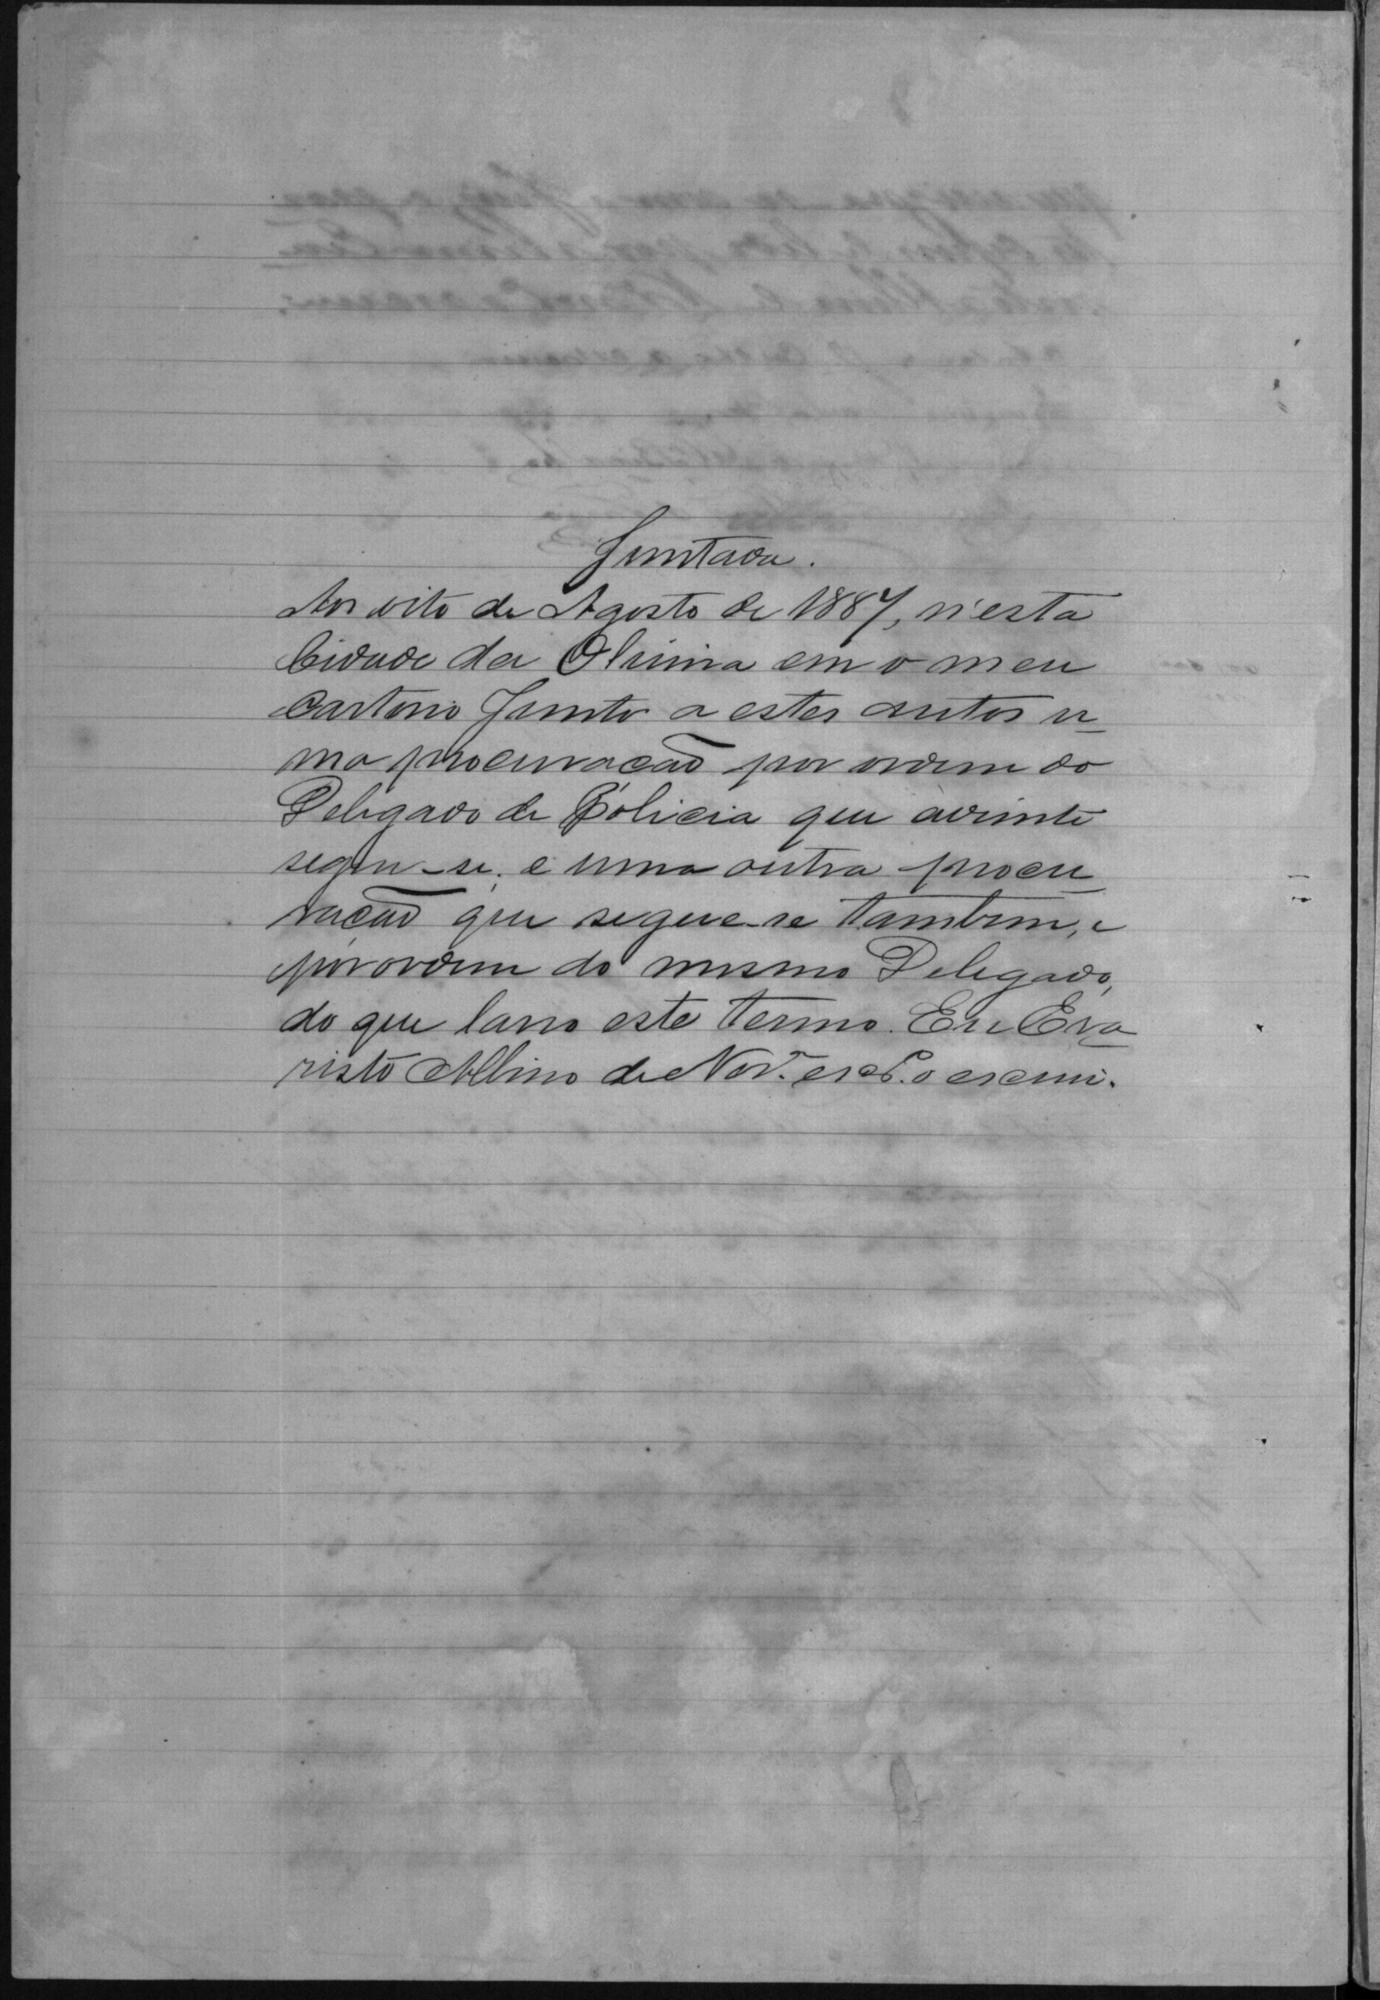 Juntada.
Aos oito de Agosto de 1887, n'esta
Cidade da Olinda em o meu
Cartorio Junto a estes autos u-
ma procuração por ordem do
Delegado de Policia que adiante
segue-se, e uma outra procu-
ração que segue-se tambem, e
por ordem do mesmo Delegado,
do que lavro este termo. Eu Eva-
risto Albino de escr.am o escrevi.